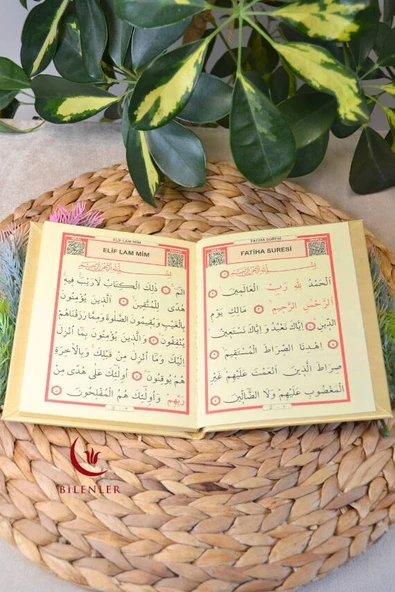 FATİHA SURESİ
FATİHA SURESİ
بِسْمِ اللّٰهِ الرَّحْمٰنِ الرَّحِيمِ
اَلْحَمْدُ لِلّٰهِ رَبِّ الْعَالَمِينَ
اَلرَّحْمٰنِ الرَّحِيمِ مَالِكِ يَوْمِ
الدِّينِ اِيَّاكَ نَعْبُدُ وَ اِيَّاكَ نَسْتَعِينُ
اِهْدِنَا الصِّرَاطَ الْمُسْتَقِيمَ
صِرَاطَ الَّذِينَ اَنْعَمْتَ عَلَيْهِمْ غَيْرِ
الْمَغْضُوبِ عَلَيْهِمْ وَلَا الضَّالِّينَ
ELİF LAM MİM
ELİF LAM MİM
بِسْمِ اللّٰهِ الرَّحْمٰنِ الرَّحِيمِ
الٓمٓ ذٰلِكَ الْكِتَابُ لَا رَيْبَ فِيهِ
هُدًى لِلْمُتَّقِينَ اَلَّذِينَ يُؤْمِنُونَ
بِالْغَيْبِ وَيُقِيمُونَ الصَّلٰوةَ وَمِمَّا رَزَقْنَاهُمْ
يُنْفِقُونَ وَالَّذِينَ يُؤْمِنُونَ بِمَا اُنْزِلَ
اِلَيْكَ وَمَا اُنْزِلَ مِنْ قَبْلِكَ وَبِالْاٰخِرَةِ
هُمْ يُوقِنُونَ اُولٰئِكَ عَلٰى هُدًى مِنْ
رَبِّهِمْ وَاُولٰئِكَ هُمُ الْمُفْلِحُونَ
BİLENLER